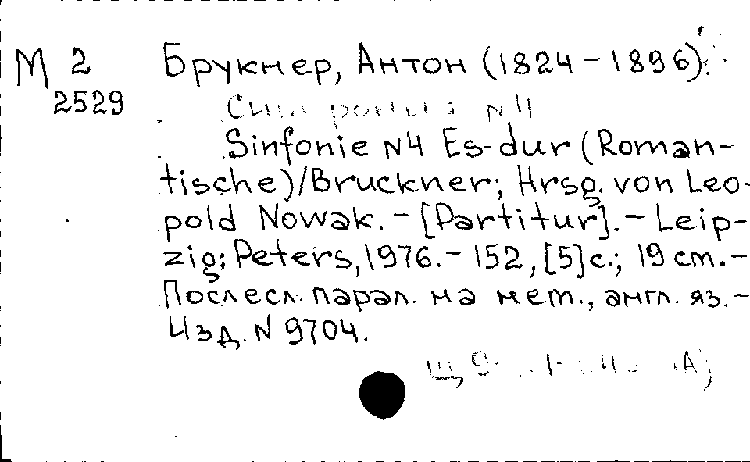 М 2 Брукнер, Антон (1824-1896).
2529
N4
Sinfonie N4 Es-dur (Roman-
tische)/Bruckner; Hrsg. von Leo-
pold Nowak. - [Partitur]. - Leip-
zig: Peters, 1976. - 152, [5]с.; 19 cm. -
Послесл. парал. на нем., англ. яз. -
Изд. N 9704.